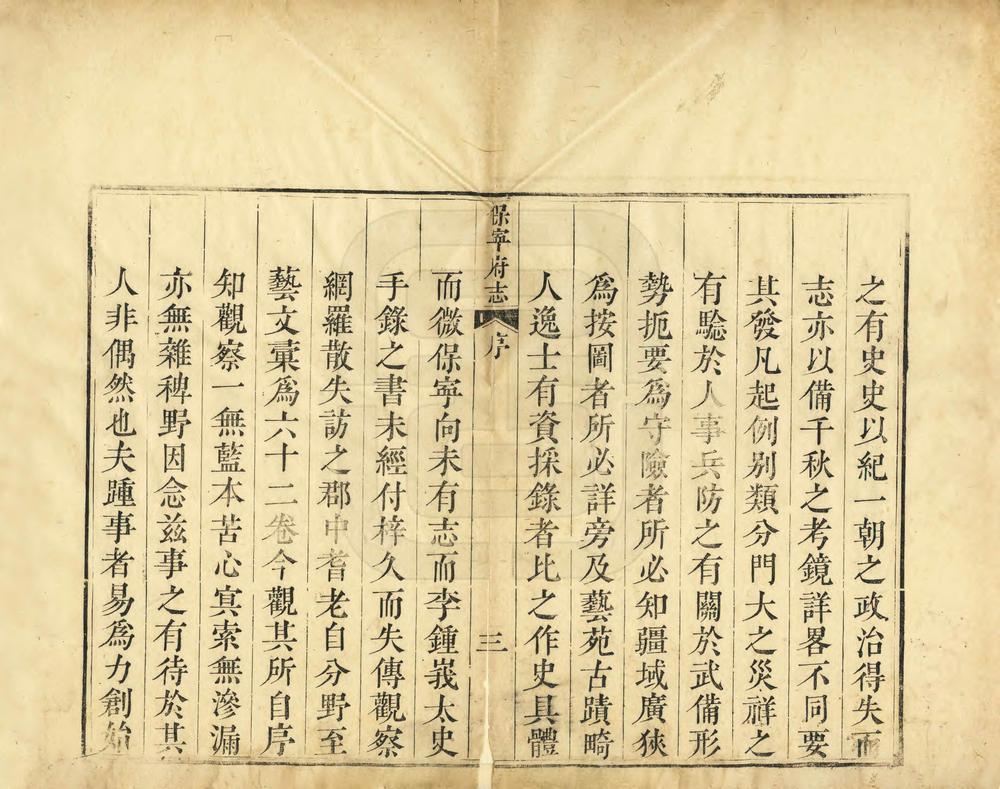 之有史史以紀一朝之政治得失而
志亦以備千秋之考鏡詳畧不同要
其發凡起例別類分門大之災祥之
有騐於人事兵防之有關於武備形
勢扼要爲守險者所必知疆域廣狹
爲按圖者所必詳旁及藝苑古蹟畸
人逸士有資採錄者比之作史具體
保寧府志
序
三
而微保寧向未有志而李鍾峩太史
手錄之書未經付梓久而失傳觀察
網羅散失訪之郡中耆老自分野至
藝文彚爲六十二卷今觀其所自序
知觀察一無藍本苦心冥索無滲漏
亦無雜稗野因念兹事之有待於其
人非偶然也夫踵事者易爲力創始